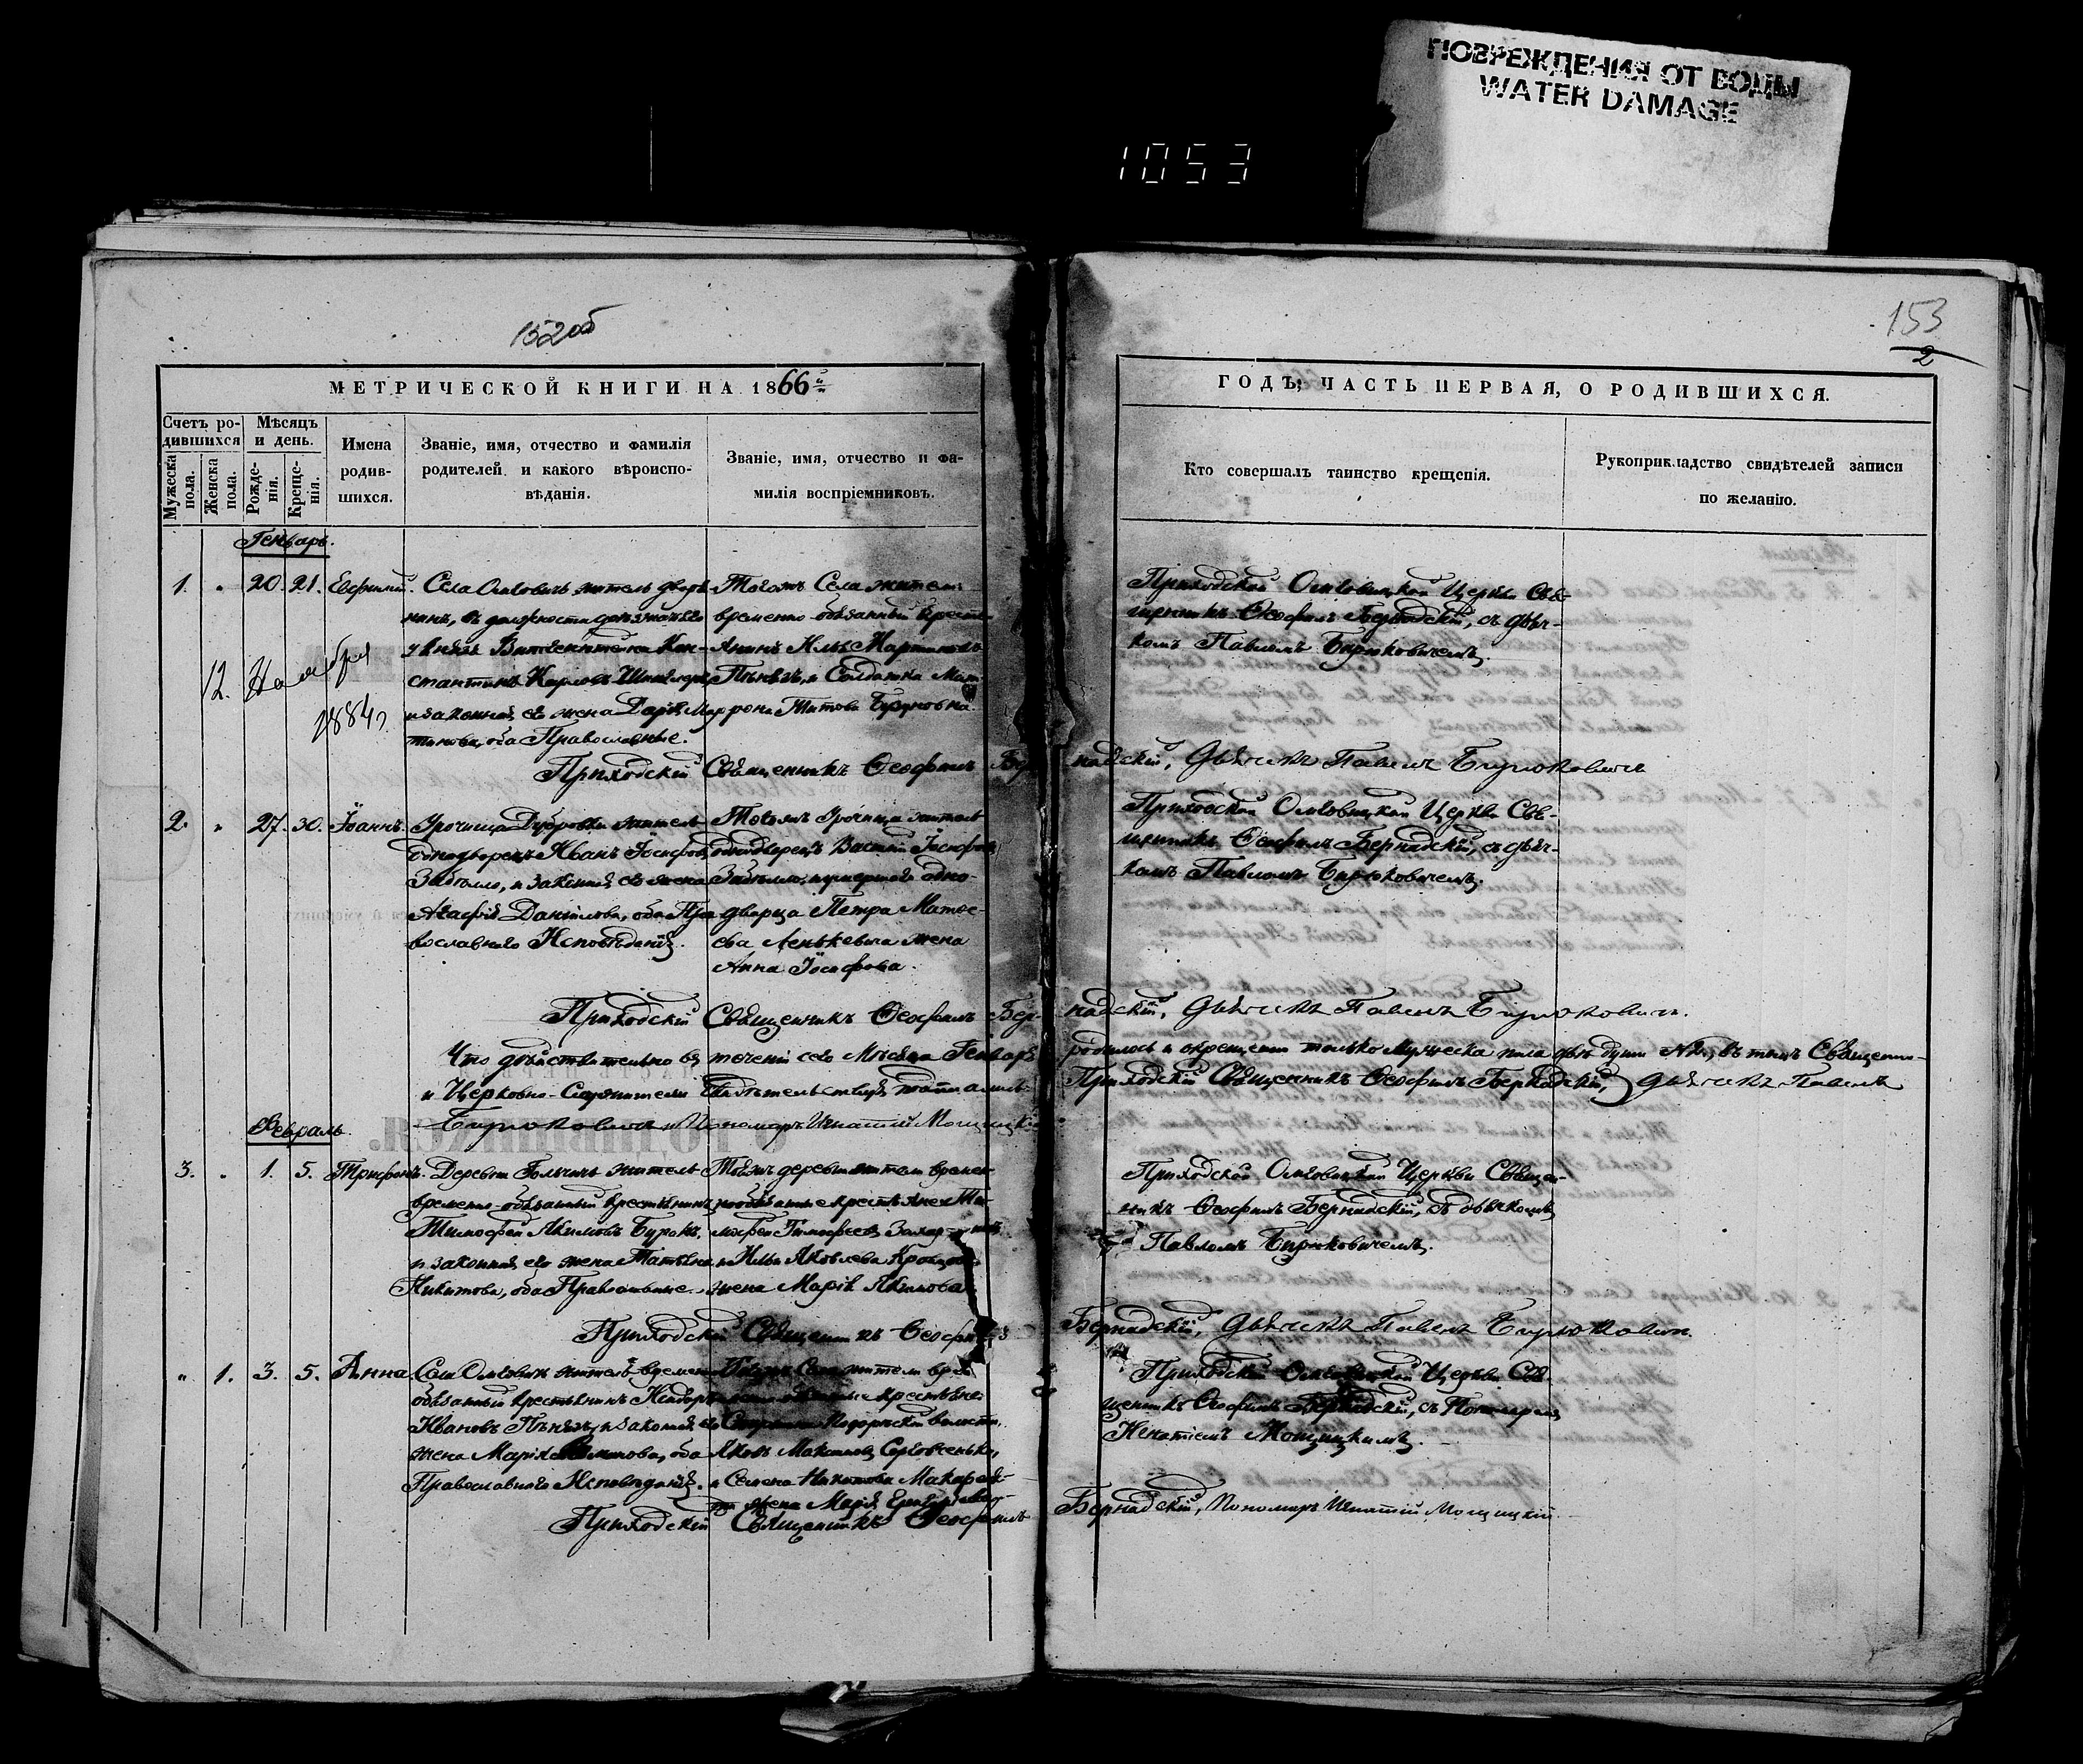 ПОВРЕЖДЕНИЯ ОТ ВОДЫ
WATER DAMAGE
1053
152об
153
2
МЕТРИЧЕСКОЙ КНИГИ НА 1866й
ГОДЪ, ЧАСТЬ ПЕРВАЯ, О РОДИВШИХСЯ.
Счетъ родившихся
Мужеска пола.
Женска пола.
Мѣсяцъ и день.
Рожденія.
Крещенія.
Имена родившихся.
Званіе, имя, отчество и фамилія
родителей и какого вѣроиспо-
вѣданія.
Званіе, имя, отчество и фа-
милія воспріемниковъ.
Кто совершалъ таинство крещенія.
Рукоприкладство свидѣтелей записи
по желанію.
Генварь.
1. " 20. 21. Евфимій.
Села житель дворя-
нинъ, въ должности
у Князя Витгенштейна Кон-
стантинъ Карловъ
и законная его жена Дарія Мар-
тинова, оба Православные.
Тогожъ Села жители
временно-обязанный крестья-
нинъ Илья Мартиновъ
и Солдатка Мат-
рона Титова
Приходской Церкви Свя-
щенникъ Ѳеофилъ Бернадскій, съ дьяч-
комъ Павломъ Бирюковичемъ.
12. Ноября
1884 г.
Приходскій Священникъ Ѳеофилъ Бернадскій, Дьячекъ Павелъ Бирюковичъ
2. " 27. 30. Іоаннъ.
Урочища Дубровки житель
однодворецъ Иванъ Іосифовъ
и законная его жена
Агафія Данилова, оба Пра-
вославнаго Исповѣданія.
Тогожъ Урочища житель
однодворецъ Василій Іосифовъ
и умершаго одно-
дворца Петра Матѳе-
ева Ленькевича жена
Анна Іосифова.
Приходской Церкви Свя-
щенникъ Ѳеофилъ Бернадскій, съ дьяч-
комъ Павломъ Бирюковичемъ.
Приходскій Священникъ Ѳеофилъ Бернадскій, Дьячекъ Павелъ Бирюковичъ.
Что дѣйствительно въ теченіи сего Мѣсяца Генваря родилось и окрещено только Мужеска пола двѣ души №2, въ томъ Священно-
и Церковно-Служители Приходскій Священникъ Ѳеофилъ Бернадскій, Дьячекъ Павелъ
Бирюковичъ и Пономаръ Игнатій Мощицкій
Февраль.
3. " 1. 5. Трифонъ.
Деревни житель
временно-обязанный крестьянинъ
Тимофей Якимовъ Бурокъ,
и законная его жена Татьяна
Никитова, оба Православные.
Тоежъ деревни жители времен-
нообязанные крестьяне Ти-
мофей Тимофеевъ
и Ильи Яковлева
жена Марія Якимова.
Приходской Церкви Священ-
никъ Ѳеофилъ Бернадскій, съ дьячкомъ
Павломъ Бирюковичемъ.
Приходскій Священникъ Ѳеофилъ Бернадскій, Дьячекъ Павелъ Бирюковичъ.
" 1. 3. 5. Анна
Села житель временно-
обязанный крестьянинъ
Ивановъ и законная его
жена Марія оба
Православнаго Исповѣданія.
Села жители
крестьяне
волости
Яковъ Максимовъ
и Семена Никитова
жена Марія
Приходской Церкви Свя-
щенникъ Ѳеофилъ Бернадскій, съ Пономаремъ
Игнатіемъ Мощицкимъ.
Приходскій Священникъ Ѳеофилъ Бернадскій, Пономаръ Игнатій Мощицкій.